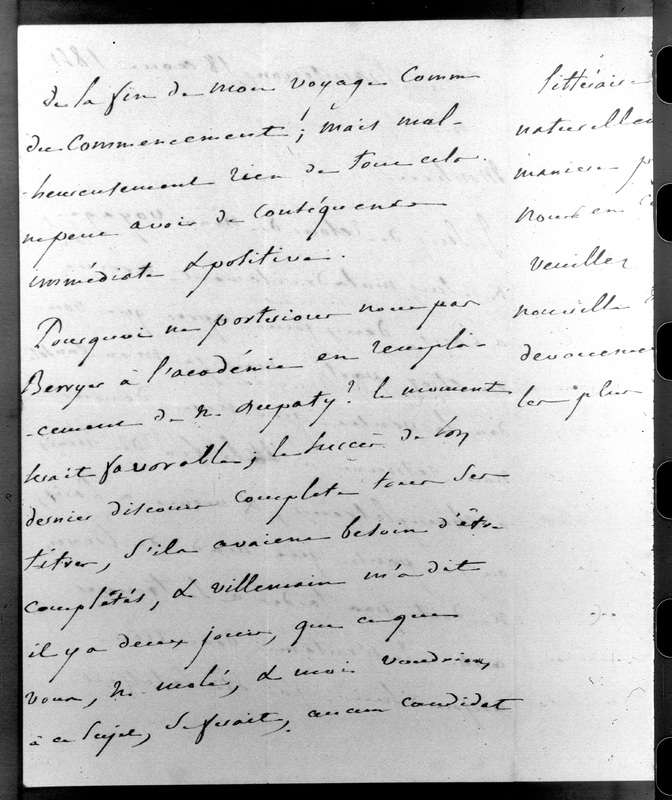 de la fin de mon voyage comme
du commencement; mais mal-
-heureusement rien de tout cela
ne peut avoir de conséquence
immédiate & positive.
Pourquoi ne porterions nous pas
Berryer à l'académie en rempla-
-cement de M. Dupaty? le moment
serait favorable; le succès de son
dernier discours complete tous ses
titres, s'ils avaient besoin d'être
complétés, & Villemain m'a dit
il y a deux jours, que ce que
vous, M. Molé, & moi voudrions
à ce sujet, se ferait, aucun candidat
littéraire
naturellem
manière
nous en
veuillez
nouvelle
dévouemen
les plus